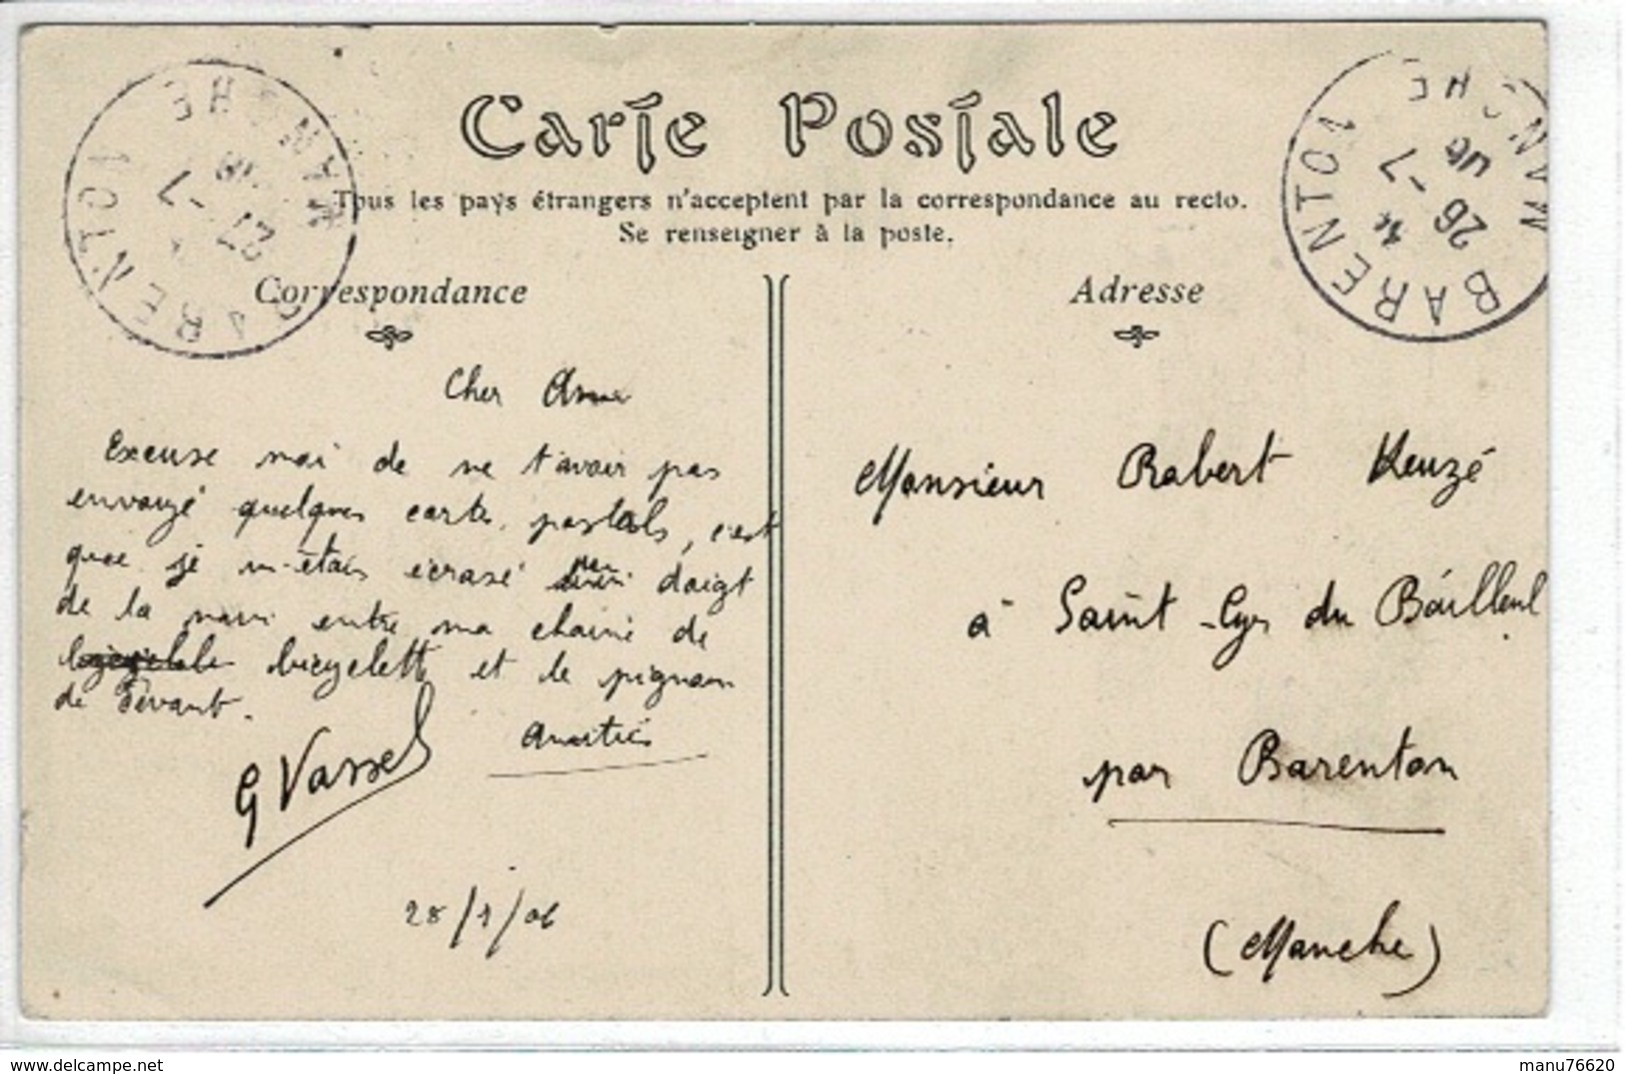 Carte Postale
Tous les pays étrangers n'acceptent par la correspondance au recto.
Se renseigner à la poste.
Correspondance
Cher Ami
Excuse moi de ne t'avoir pas
envoyé quelques cartes postals, c'est
que je m'étais écrasé un doigt
de la main entre ma chaine de
bicyclette et le pignon
de devant.
Amitiés
G Vassel
Adresse
Monsieur Robert Heuzé
à Saint-Cyr du Bailleul
par Barenton
(Manche)
BARENTON
MANCHE
27 -7
BARENTON
MANCHE
26 -7
06
www.delcampe.net
manu76620